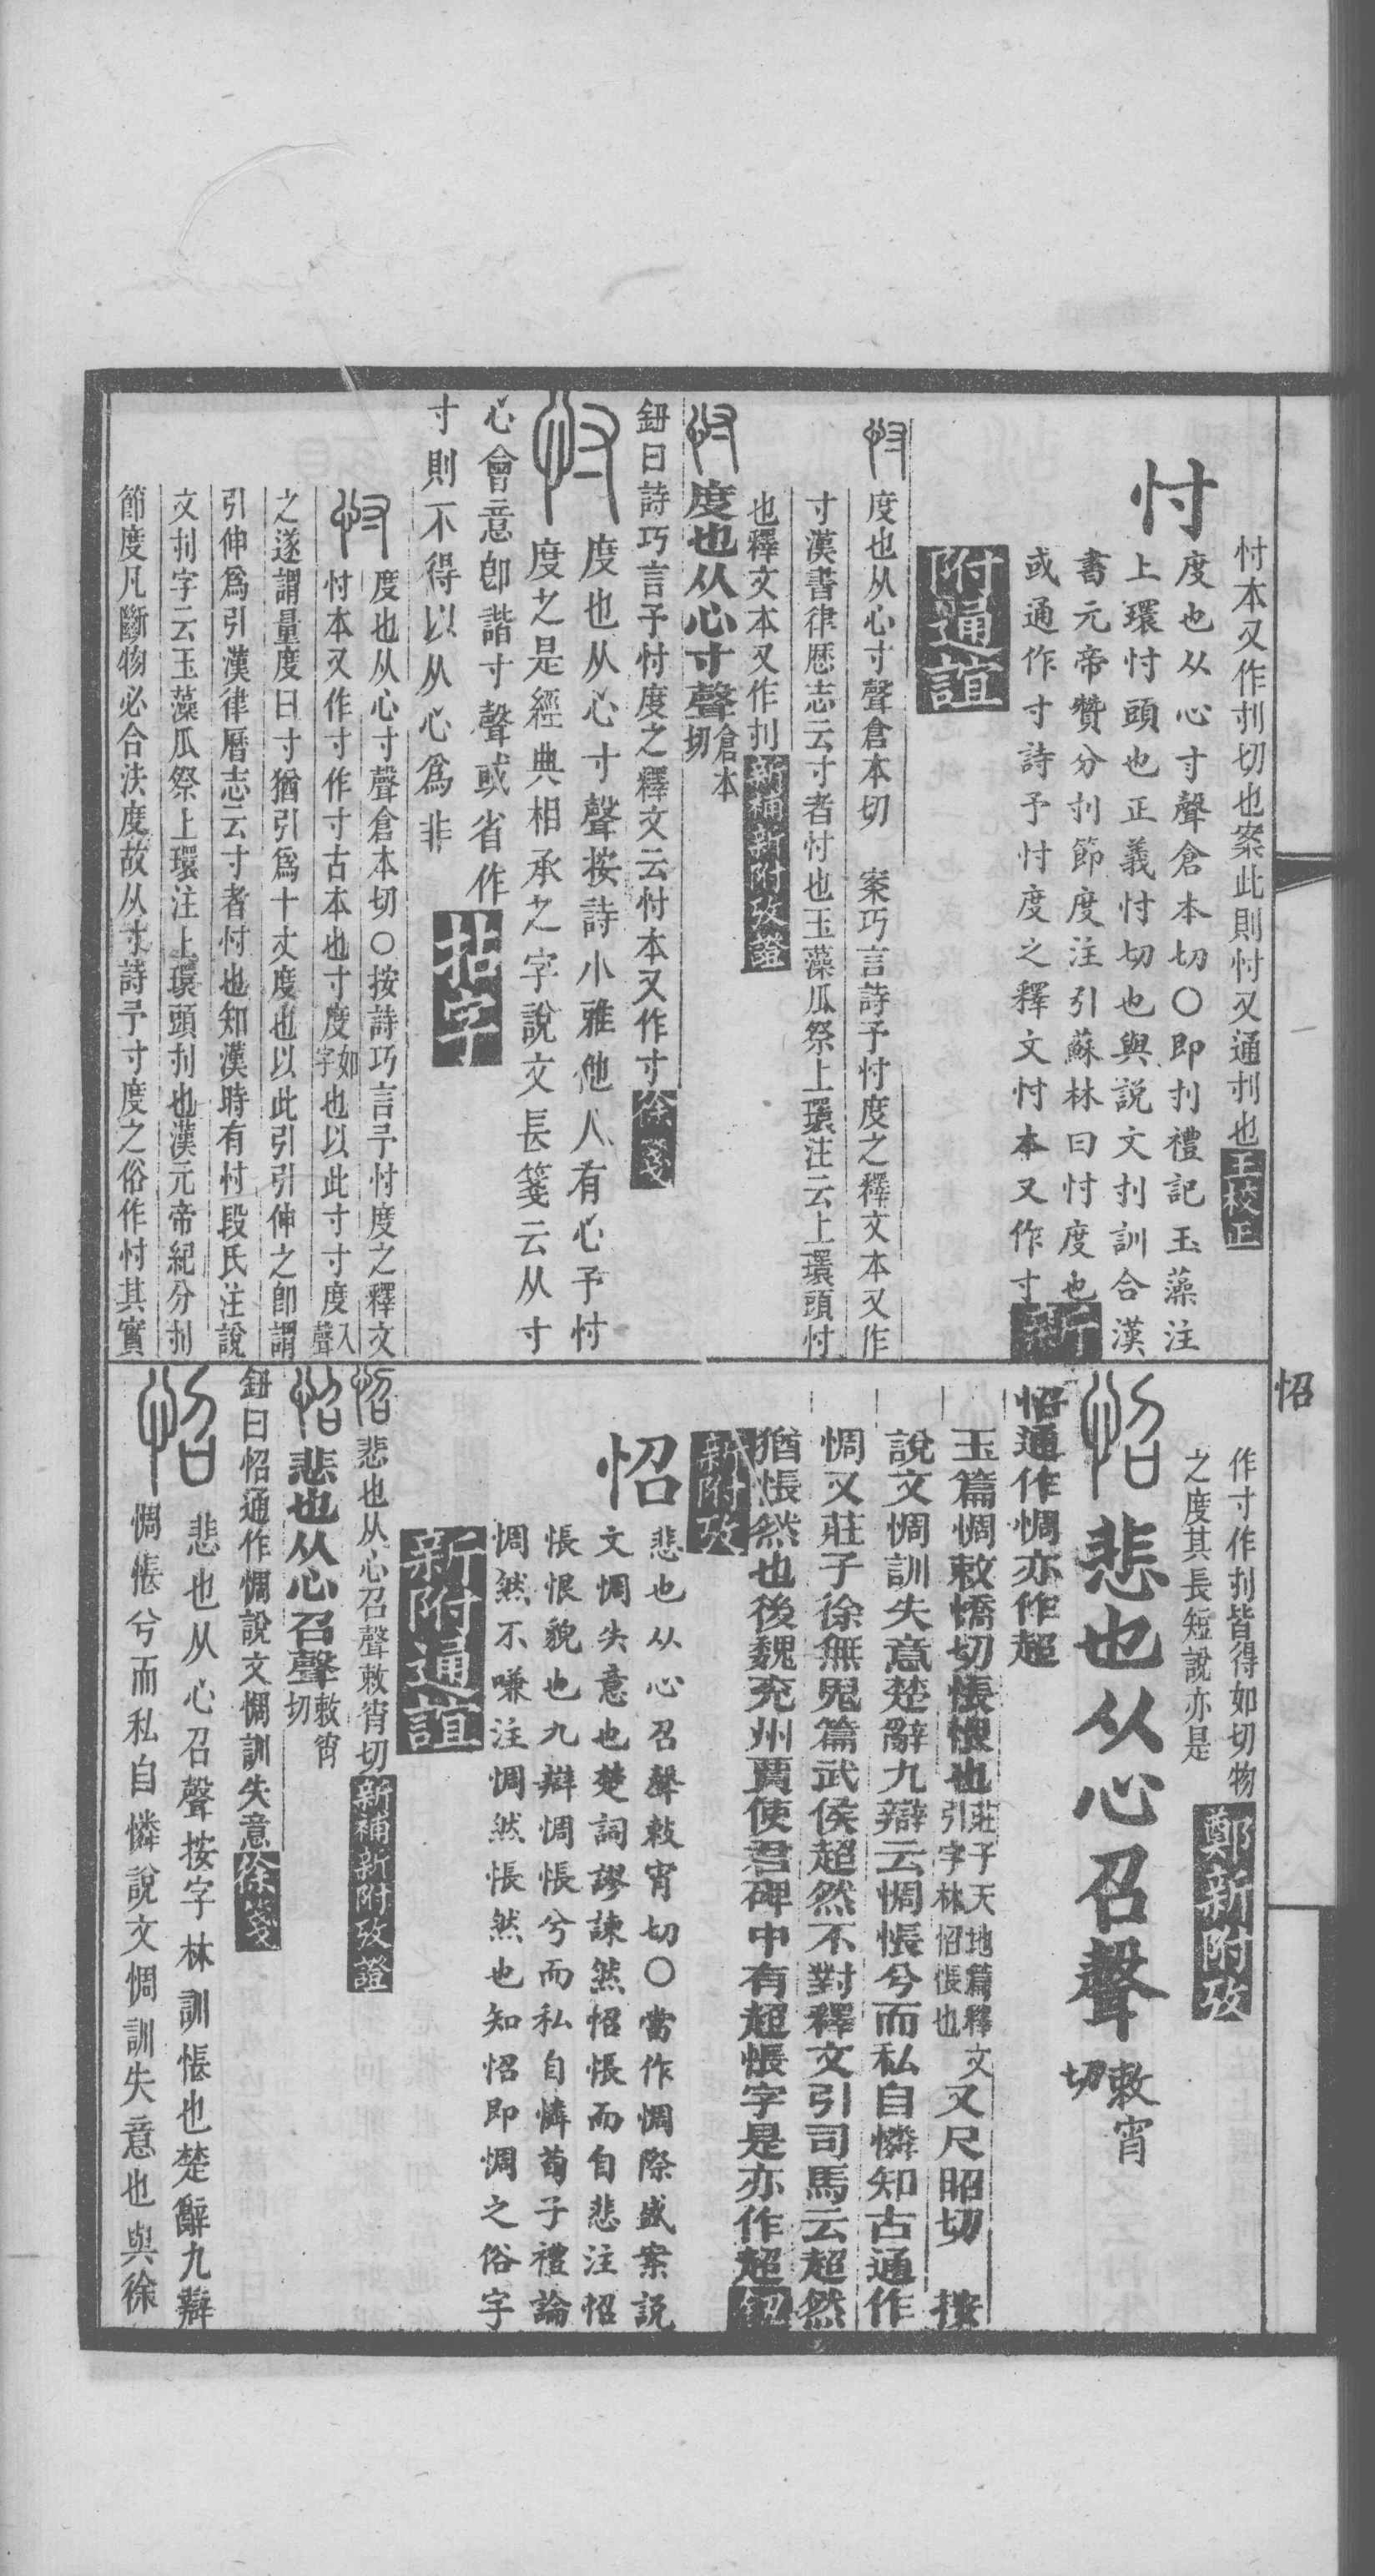 忖本又作刌切也案此則忖又通刌也王校正
忖
度也从心寸聲倉本切○即刌禮記玉藻注
上環忖頭也正義忖切也與説文刌訓合漢
書元帝贊分刌節度注引蘇林曰忖度也
或通作寸詩予忖度之釋文忖本又作寸新
附通誼
忖度也从心寸聲倉本切 案巧言詩予忖度之釋文本又作
寸漢書律厯志云寸者忖也玉藻瓜祭上環注云上環頭忖
也釋文本又作刌新補新附攷證
忖度也从心寸聲倉本切
鈕曰詩巧言予忖度之釋文云忖本又作寸徐箋
忖
度也从心寸聲按詩小雅他人有心予忖
度之是經典相承之字説文長箋云从寸
心會意卽諧寸聲或省作
寸則不得以从心爲非拈字
忖
度也从心寸聲倉本切○按詩巧言予忖度之釋文
忖本又作寸作寸古本也寸度如字也以此寸寸度入聲
之遂謂量度曰寸猶引爲十丈度也以此引引伸之卽謂
引伸爲引漢律曆志云寸者忖也知漢時有忖段氏注說
文刌字云玉藻瓜祭上環注上環頭刌也漢元帝紀分刌
節度凡斷物必合法度故从寸詩予寸度之俗作忖其實
怊
作寸作刌皆得如切物
之度其長短說亦是鄭新附攷
怊悲也从心召聲敕宵切
怊通作惆亦作超
玉篇惆敕憍切悵恨也莊子天地篇釋文引字林怊悵也又尺昭切 按
說文惆訓失意楚辭九辯云惆悵兮而私自憐知古通作
惆又莊子徐無鬼篇武侯超然不對釋文引司馬云超然
猶悵然也後魏兖州賈使君碑中有超悵字是亦作超鈕
新附攷
怊
悲也从心召聲敕宵切○當作惆際盛案説
文惆失意也楚詞謬諫然怊悵而自悲注怊
悵恨貌也九辯惆悵兮而私自憐荀子禮論
惆然不嗛注惆然悵然也知怊即惆之俗字
新附通誼
怊悲也从心召聲敕宵切新補新附攷證
怊悲也从心召聲敕宵切
鈕曰怊通作惆說文惆訓失意徐箋
怊
悲也从心召聲按字林訓悵也楚辭九辯
惆悵兮而私自憐說文惆訓失意也與徐